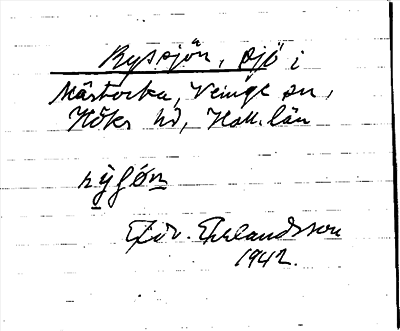 Ryssjön, sjö i
Mårtocka, Veinge sn,
Höks hd, Hall. län
rỳʃǿn
Edv. Erlandsson
1942.